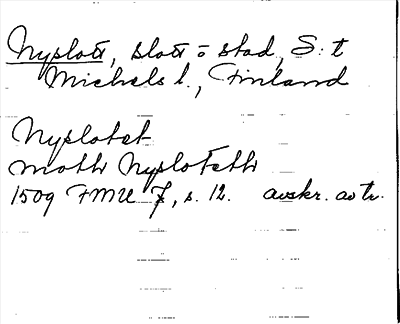 Nyslott, slott o stad, S:t
Michels l., Finland
Nyslotet
moth Nysloteth
1509 FMU 7, s. 12. avskr. av tr.